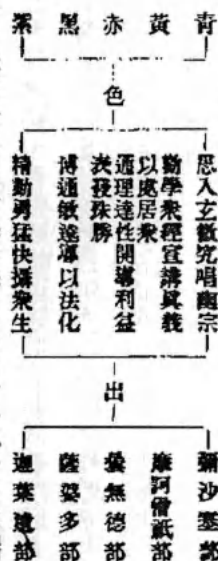 青
黃
赤
黑
紫
色
思入玄微究唱幽宗
勤學衆經宣講眞義
以處居衆
通理達性開導利益
表發殊勝
博通敏達導以法化
精勤勇猛快攝衆生
出
彌沙塞部
摩訶僧祇部
曇無德部
薩婆多部
迦葉遺部